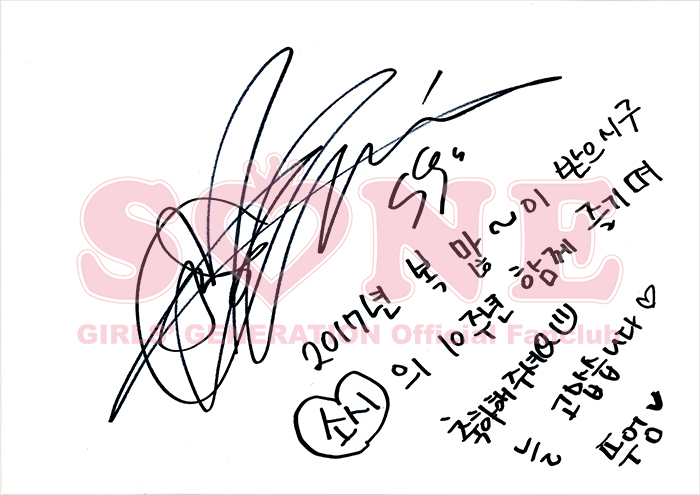 SONE
GIRLS' GENERATION Official Fanclub
2017년 복 많~이 받으시구
소시 의 10주년 함께 즐기며
축하해주셔요
늘 고맙습니다♡